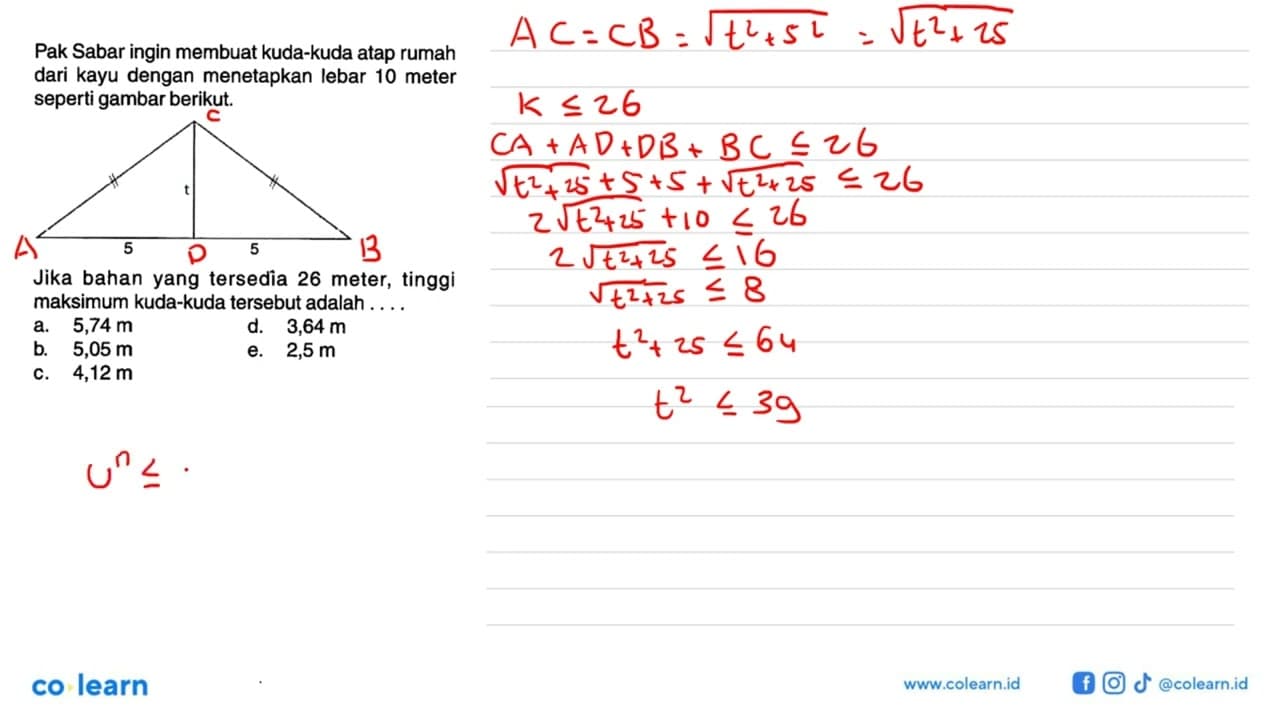 Pak Sabar ingin membuat kuda-kuda atap rumah
dari kayu dengan menetapkan lebar 10 meter
seperti gambar berikut.
C
t
A 5 D 5 B
Jika bahan yang tersedia 26 meter, tinggi
maksimum kuda-kuda tersebut adalah ....
a. 5,74 m d. 3,64 m
b. 5,05 m e. 2,5 m
c. 4,12 m
U^n ≤ .
AC = CB = √(t²+5²) = √(t²+25)
K ≤ 26
CA + AD + DB + BC ≤ 26
√(t²+25) + 5 + 5 + √(t²+25) ≤ 26
2√(t²+25) + 10 ≤ 26
2√(t²+25) ≤ 16
√(t²+25) ≤ 8
t² + 25 ≤ 64
t² ≤ 39
co learn
www.colearn.id @colearn.id